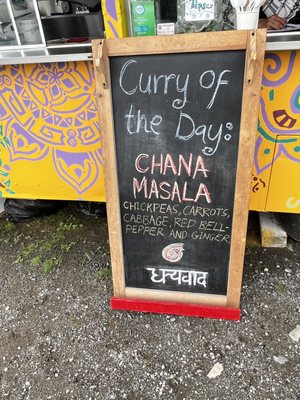 Curry of
the Day:
CHANA
MASALA
CHICKPEAS, CARROTS,
CABBAGE, RED BELL-
PEPPER AND GINGER
धन्यवाद